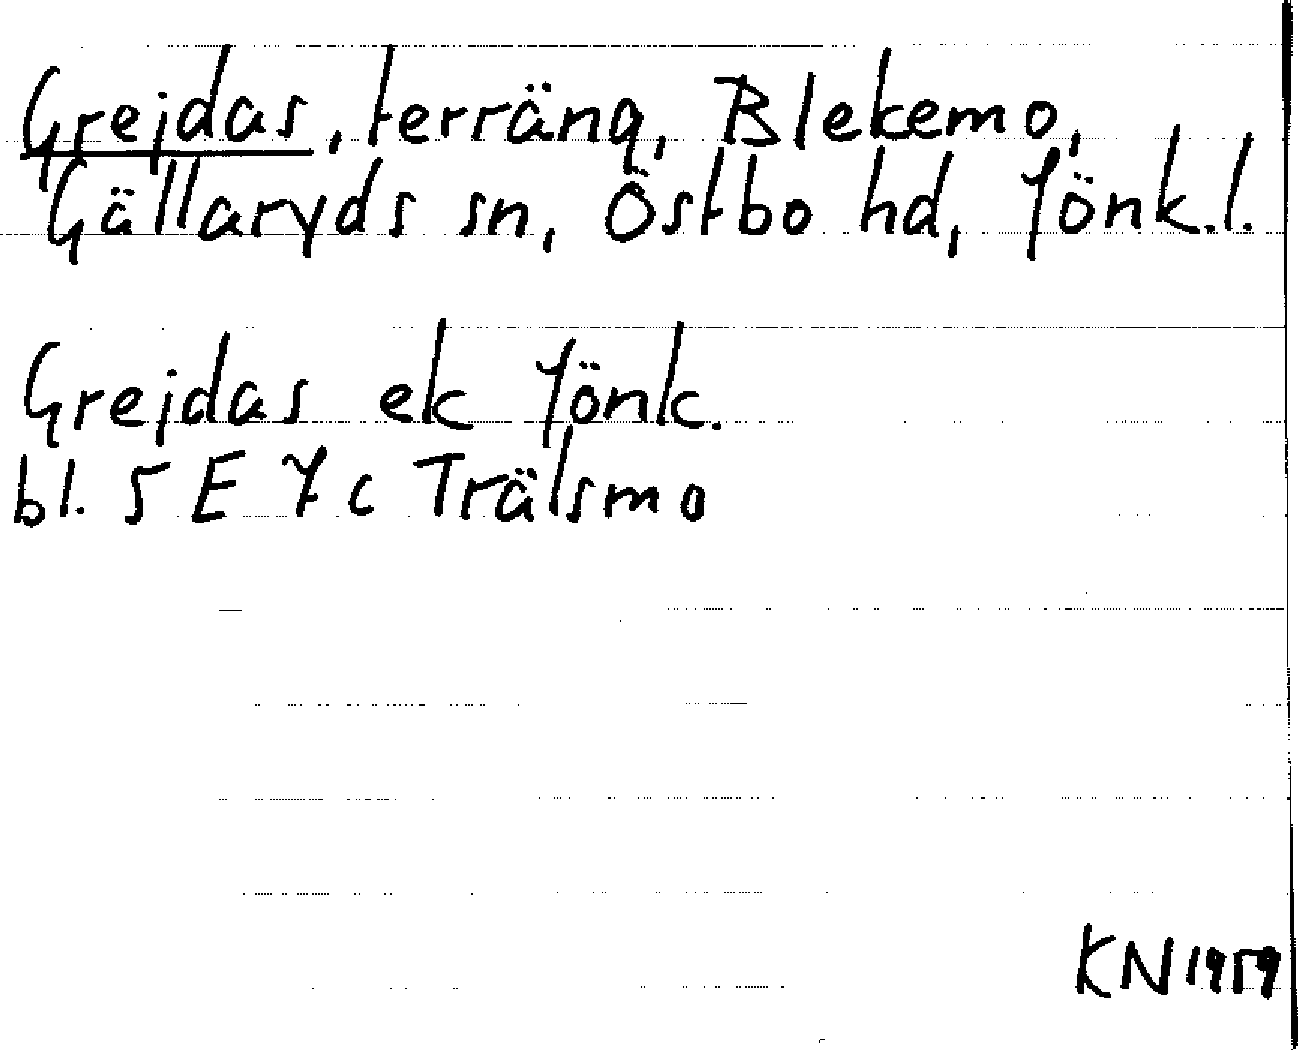 Grejdas, terräng, Blekemo,
Gällaryds sn, Östbo hd, Jönk.l.
Grejdas ek Jönk.
bl. 5 E 7 c Trälsmo
KN 1959